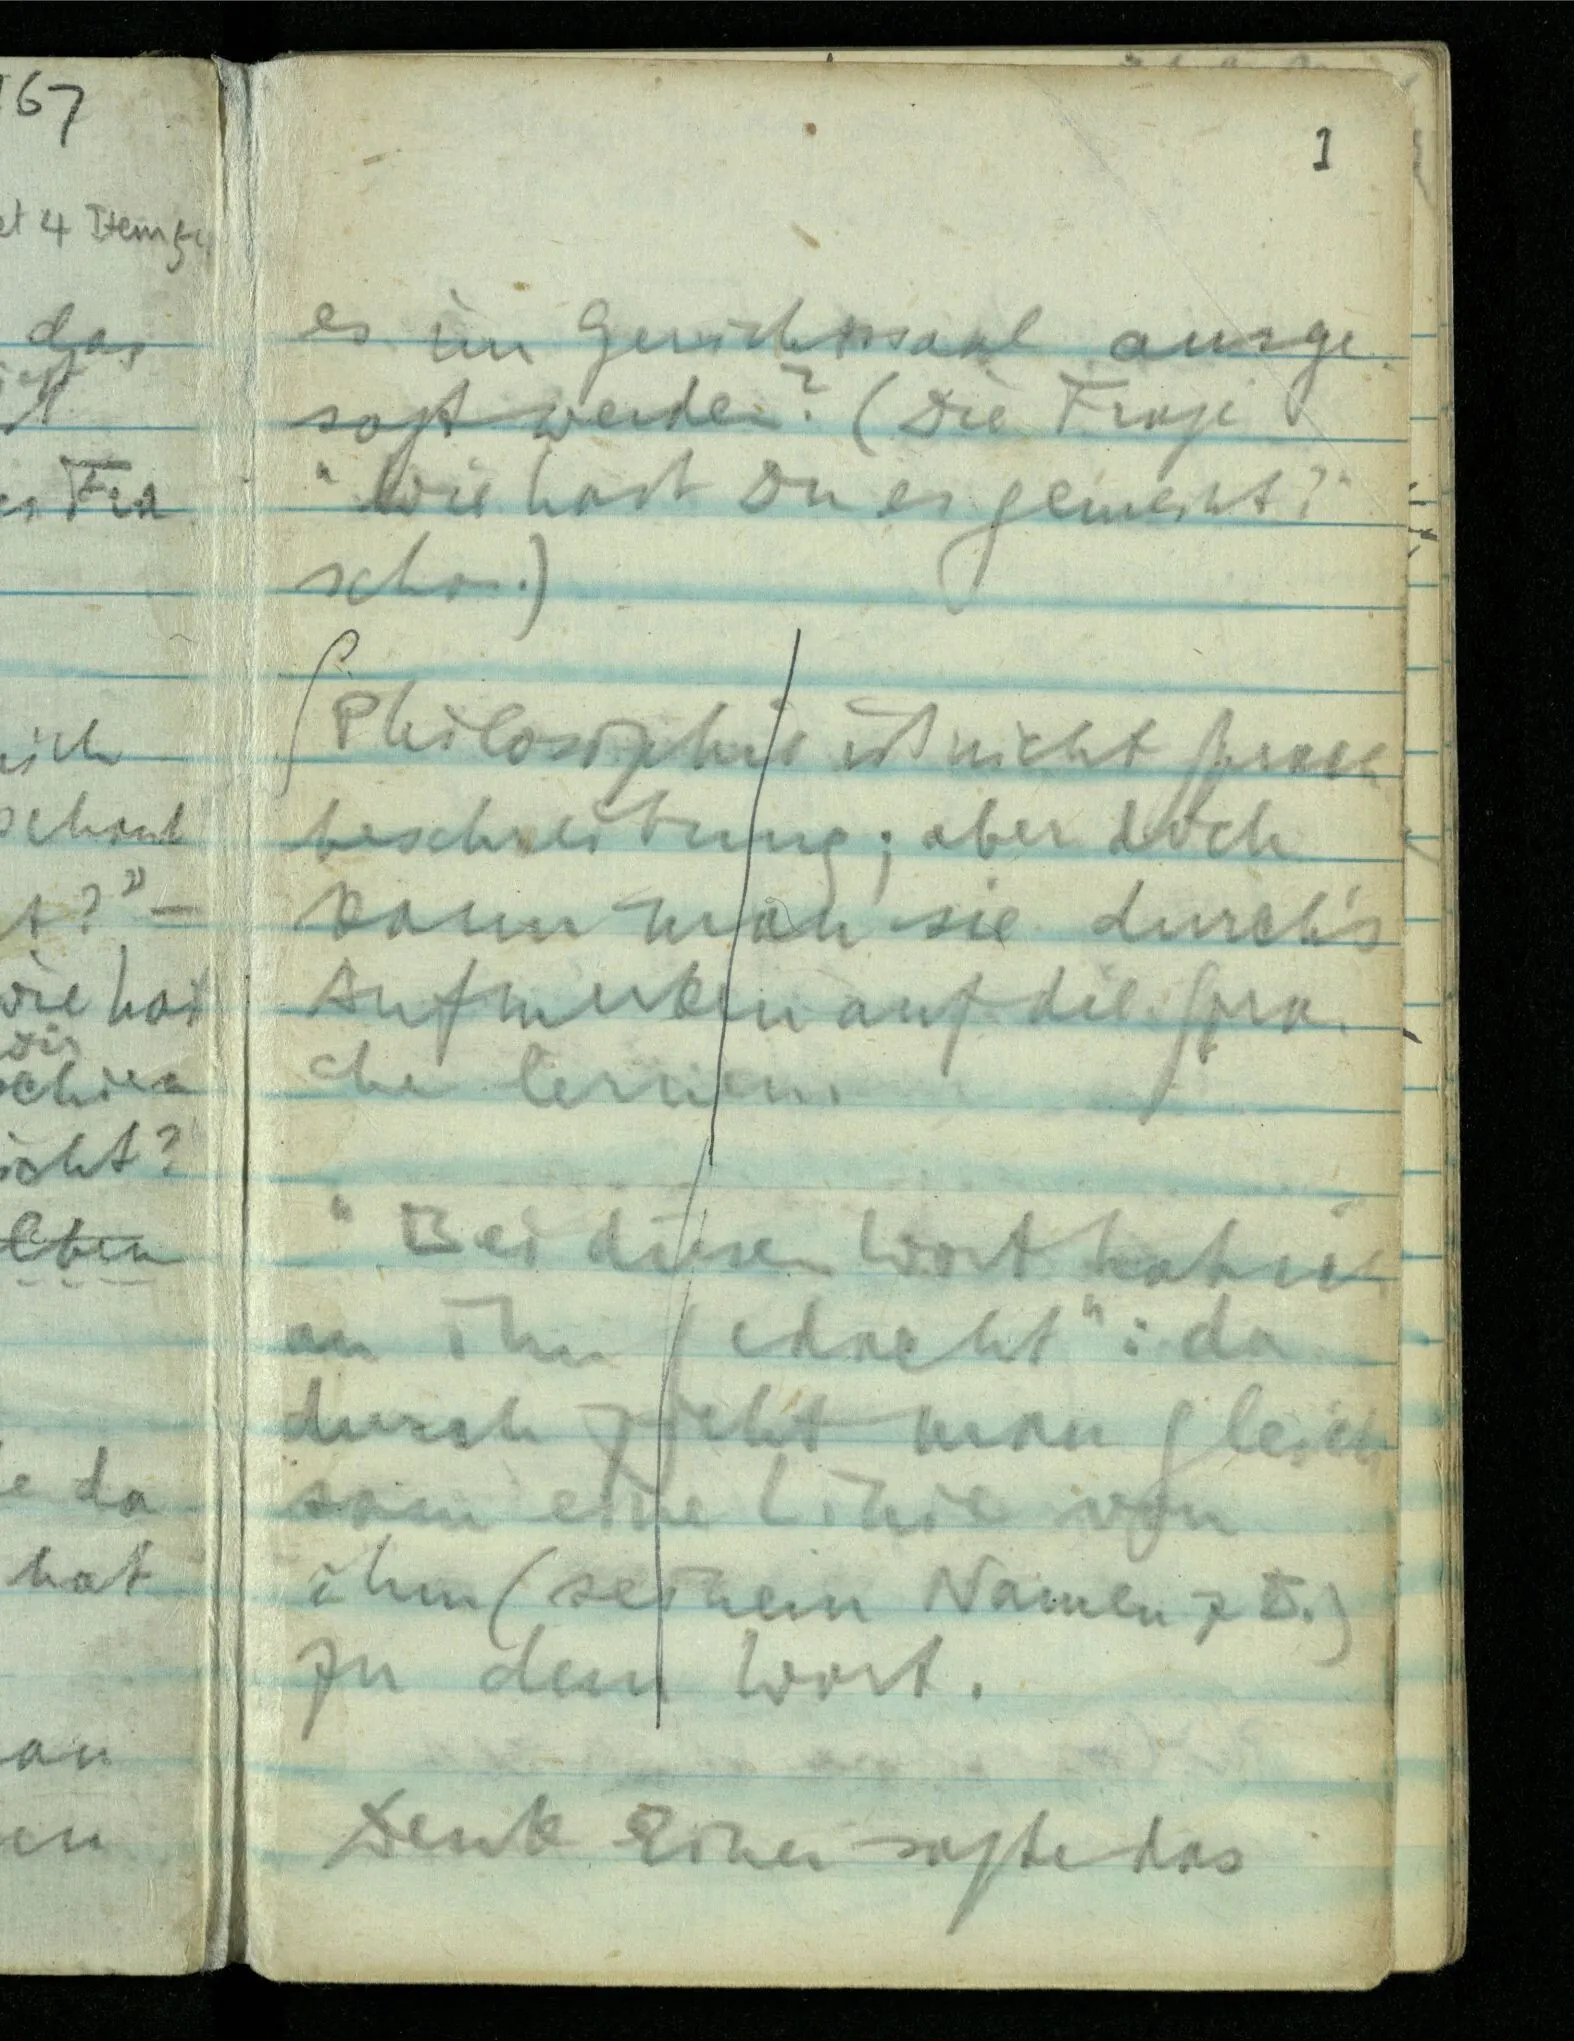 167
et 4 Items
das
er Fra
isch
schaut
t?" —
wie hat
Dir
icht?
lben
e da
hat
an
en
1
es im Gerichtssaal ausge
sagt werden? (Die Frage
"Wie hast Du es gemeint?"
schon.)
∫ Philosophie ist nicht Sprach
beschreibung; aber doch
kann man sie durch's
Aufmerken auf die Spra
che lernen.
"Bei diesem Wort hab ich
an ihn gedacht": da
durch zieht man gleich
sam eine Linie von
ihm (seinem Namen z B.)
zu dem Wort.
Denk Einer sagte das